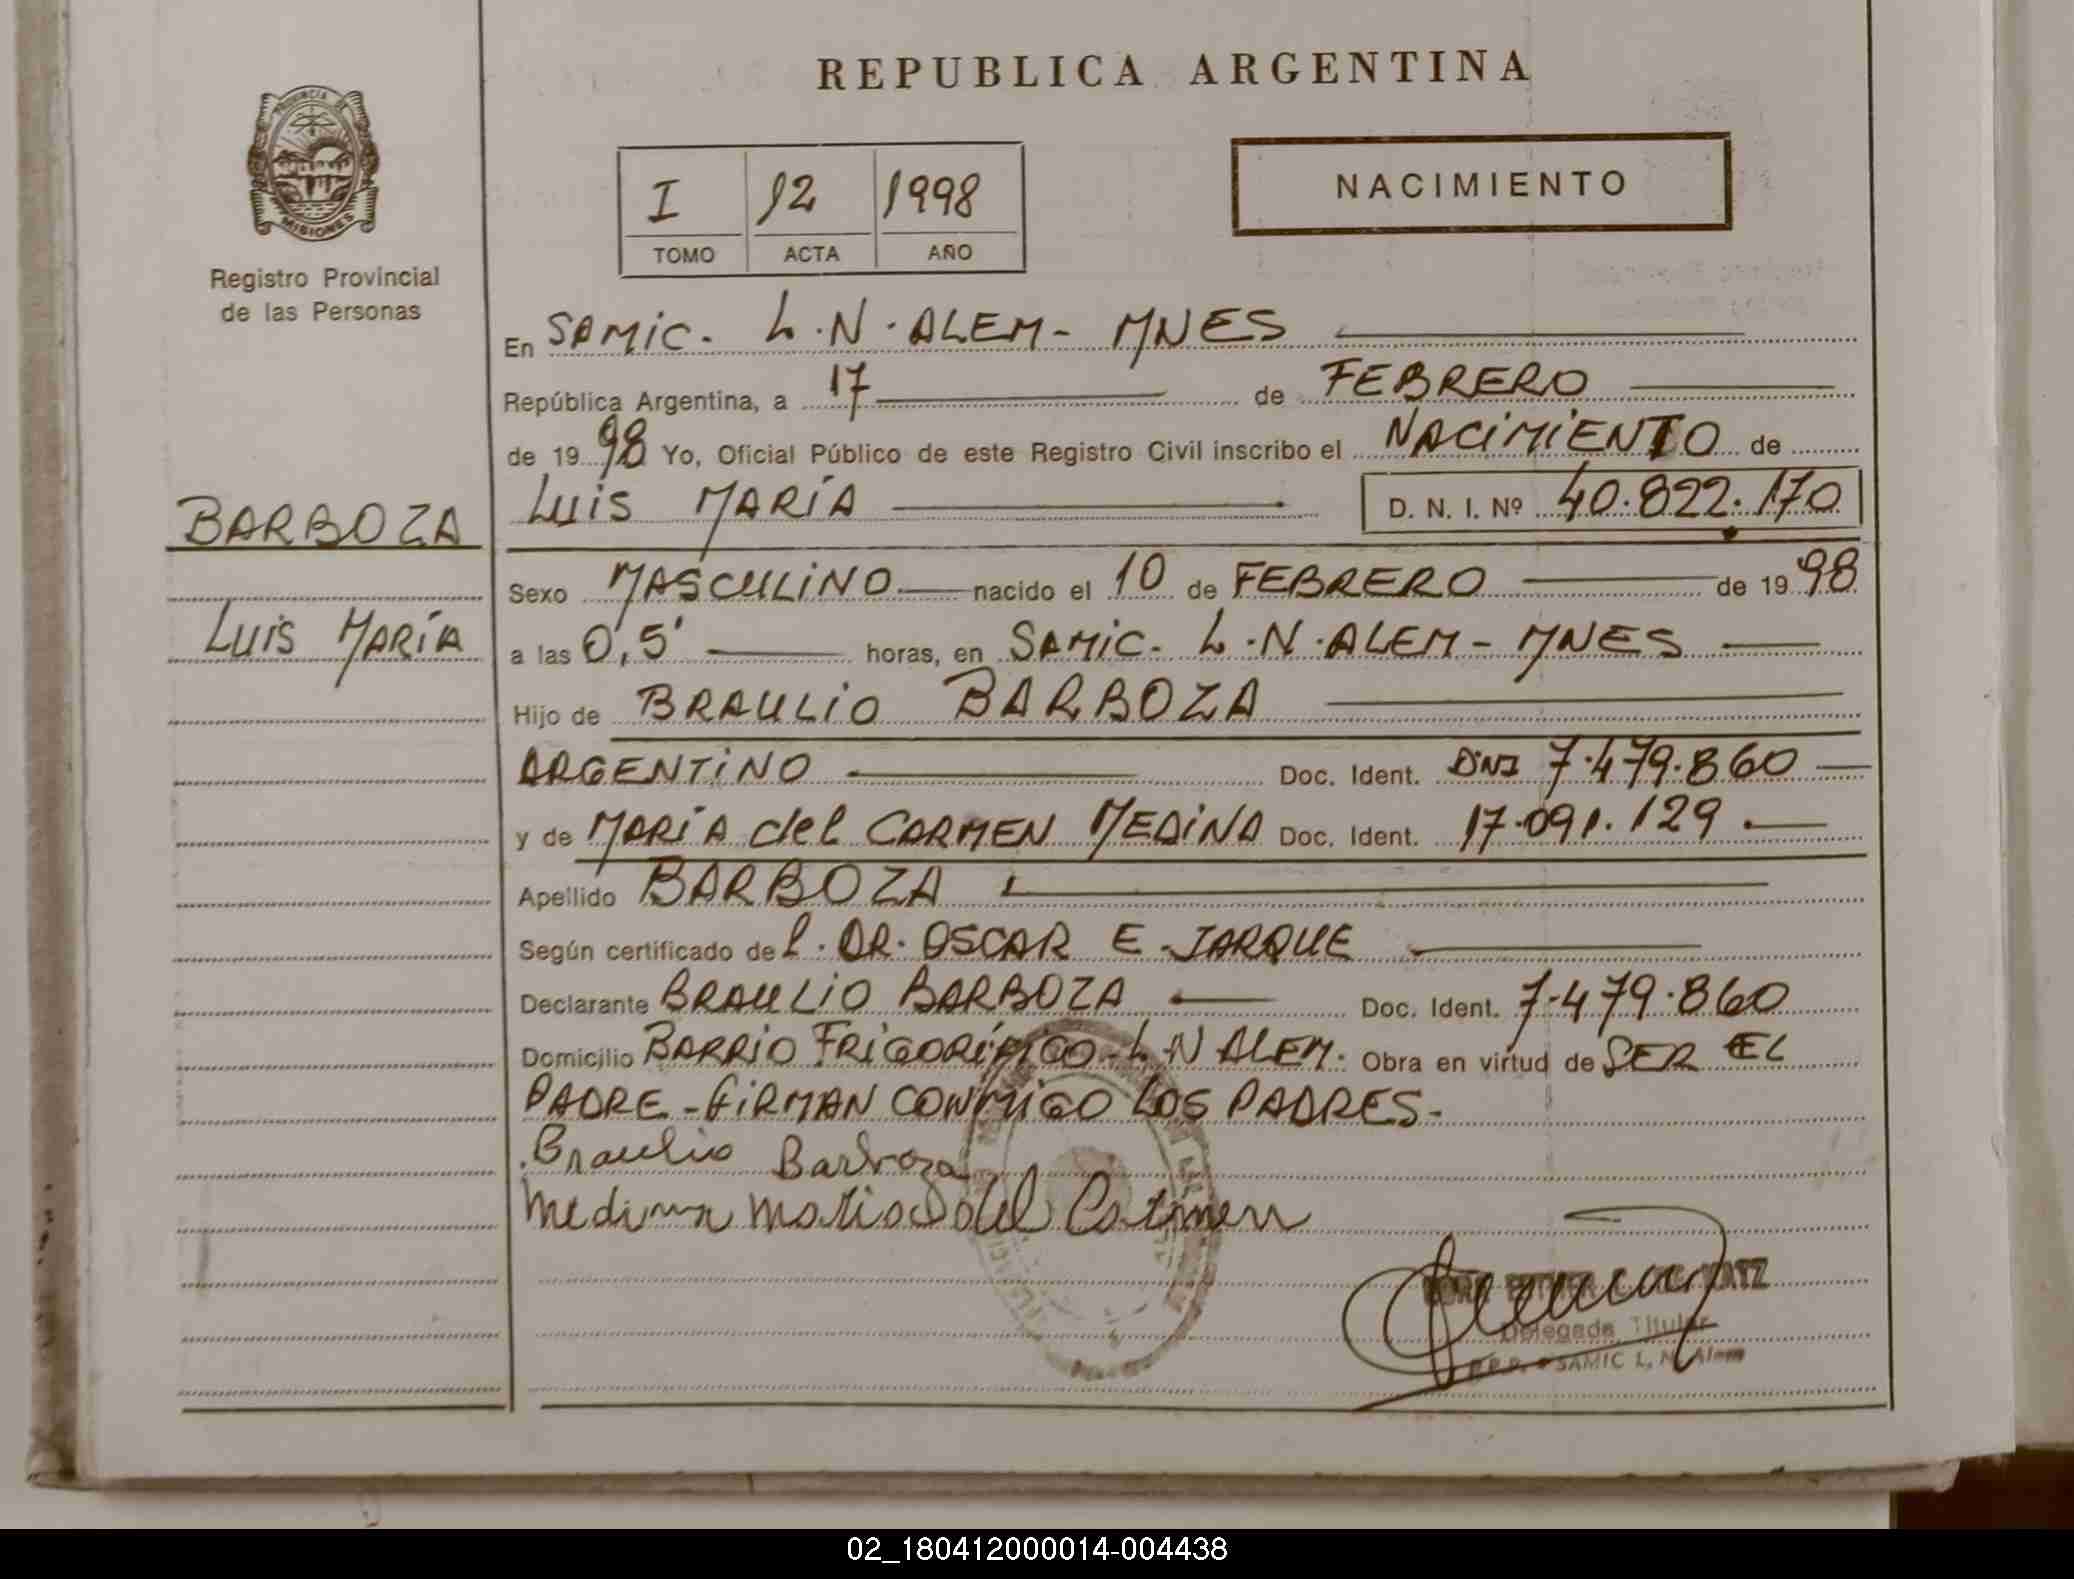 REPUBLICA ARGENTINA
PROVINCIA DE
MISIONES
Registro Provincial
de las Personas
I 12 1998
TOMO ACTA AÑO
NACIMIENTO
En SAMIC. L.N.ALEM- MNES
República Argentina, a 17 de FEBRERO
de 19 98 Yo, Oficial Público de este Registro Civil inscribo el NACIMIENTO de
BARBOZA
LUIS MARÍA D. N. I. Nº 40.822.170
Sexo MASCULINO nacido el 10 de FEBRERO de 19 98
LUIS MARÍA
a las 0,5' horas, en SAMIC. L.N.ALEM - MNES
Hijo de BRAULIO BARBOZA
ARGENTINO Doc. Ident. DNI 7.479.860
y de MARÍA del CARMEN MEDINA Doc. Ident. 17.091.129
Apellido BARBOZA
Según certificado de l. DR. OSCAR E. JARQUE
Declarante BRAULIO BARBOZA Doc. Ident. 7.479.860
Domicilio BARRIO FRIGORÍFICO-L N ALEM. Obra en virtud de SER EL
PADRE - FIRMAN CONMIGO LOS PADRES-
Braulio Barboza
Medina Maria del Carmen
Delegada Titular
SAMIC L. N. Alem
02_180412000014-004438